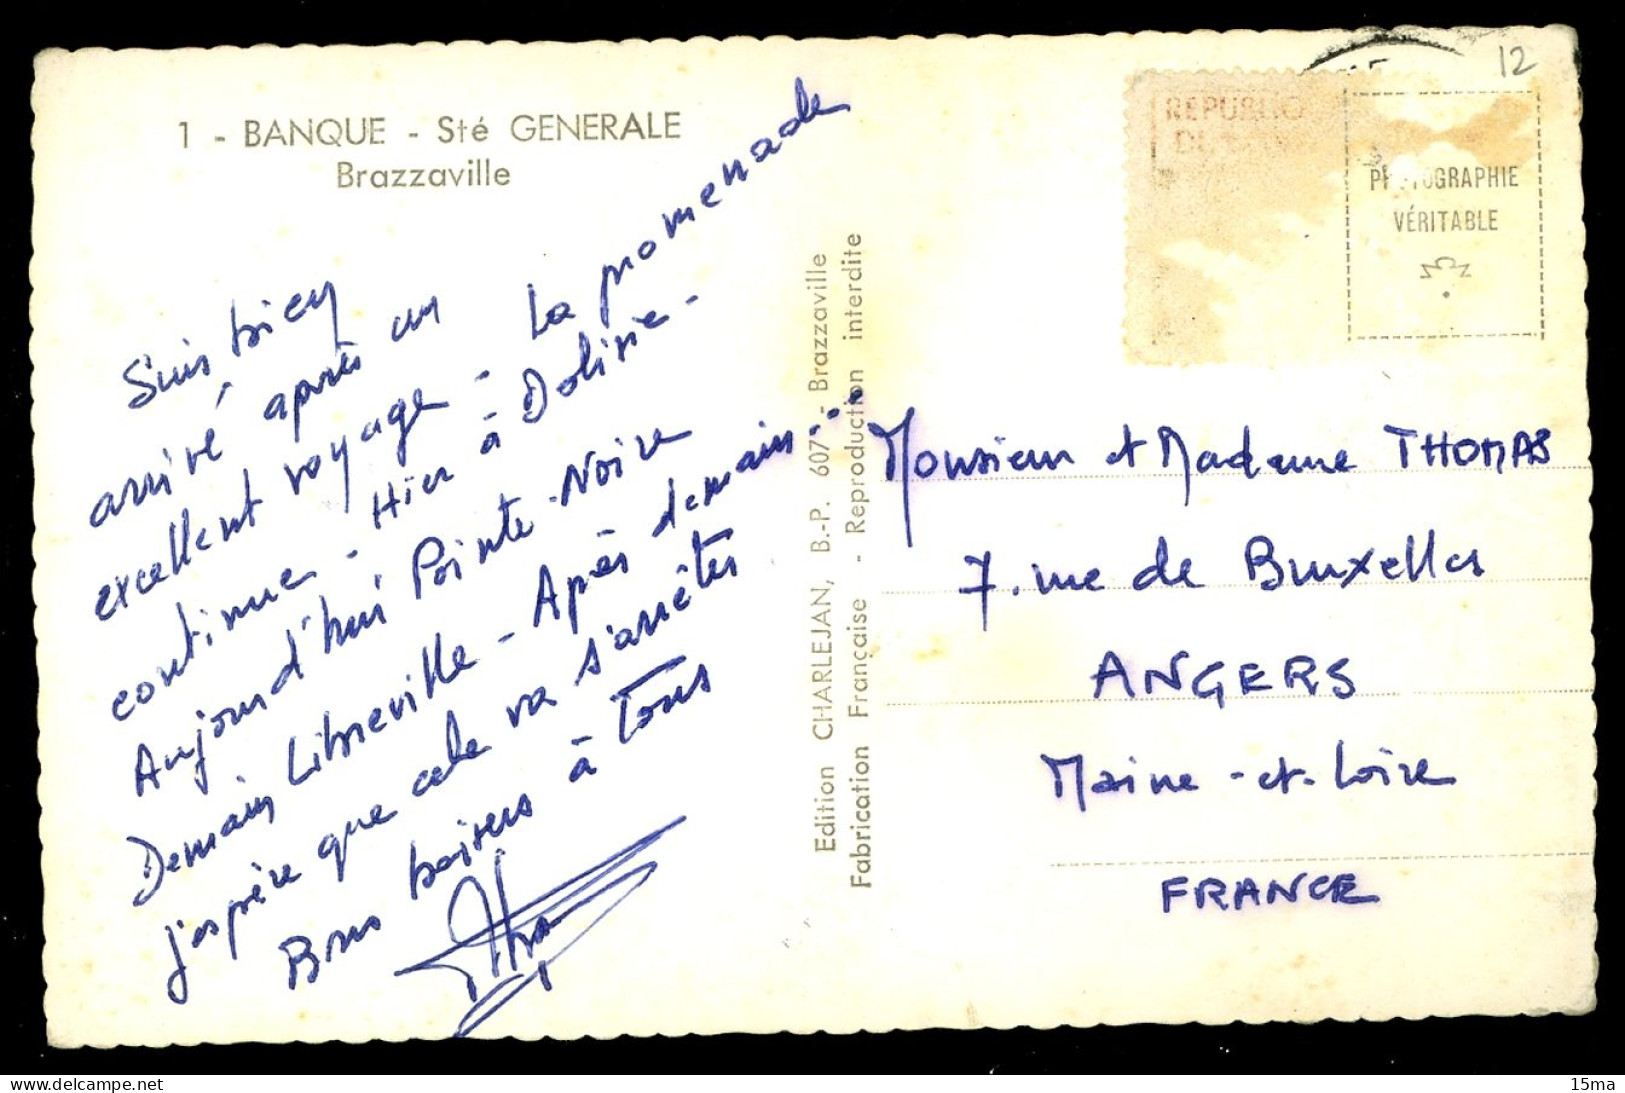 1 - BANQUE - Sté GENERALE
Brazzaville
Suis bien
arrivé après un
excellent voyage - La promenade
continue - Hier à Dolisie -
Aujourd'hui Pointe-Noire
Demain Libreville - Après demain...
j'espère que cela va s'arrêter
Bons baisers à tous
Edition CHARLEJAN, B.-P. 607 - Brazzaville
Fabrication Française - Reproduction interdite
12
REPUBLIQ
PHOTOGRAPHIE
VÉRITABLE
Monsieur et Madame THOMAS
7. rue de Bruxelles
ANGERS
Maine-et-Loire
FRANCE
15ma